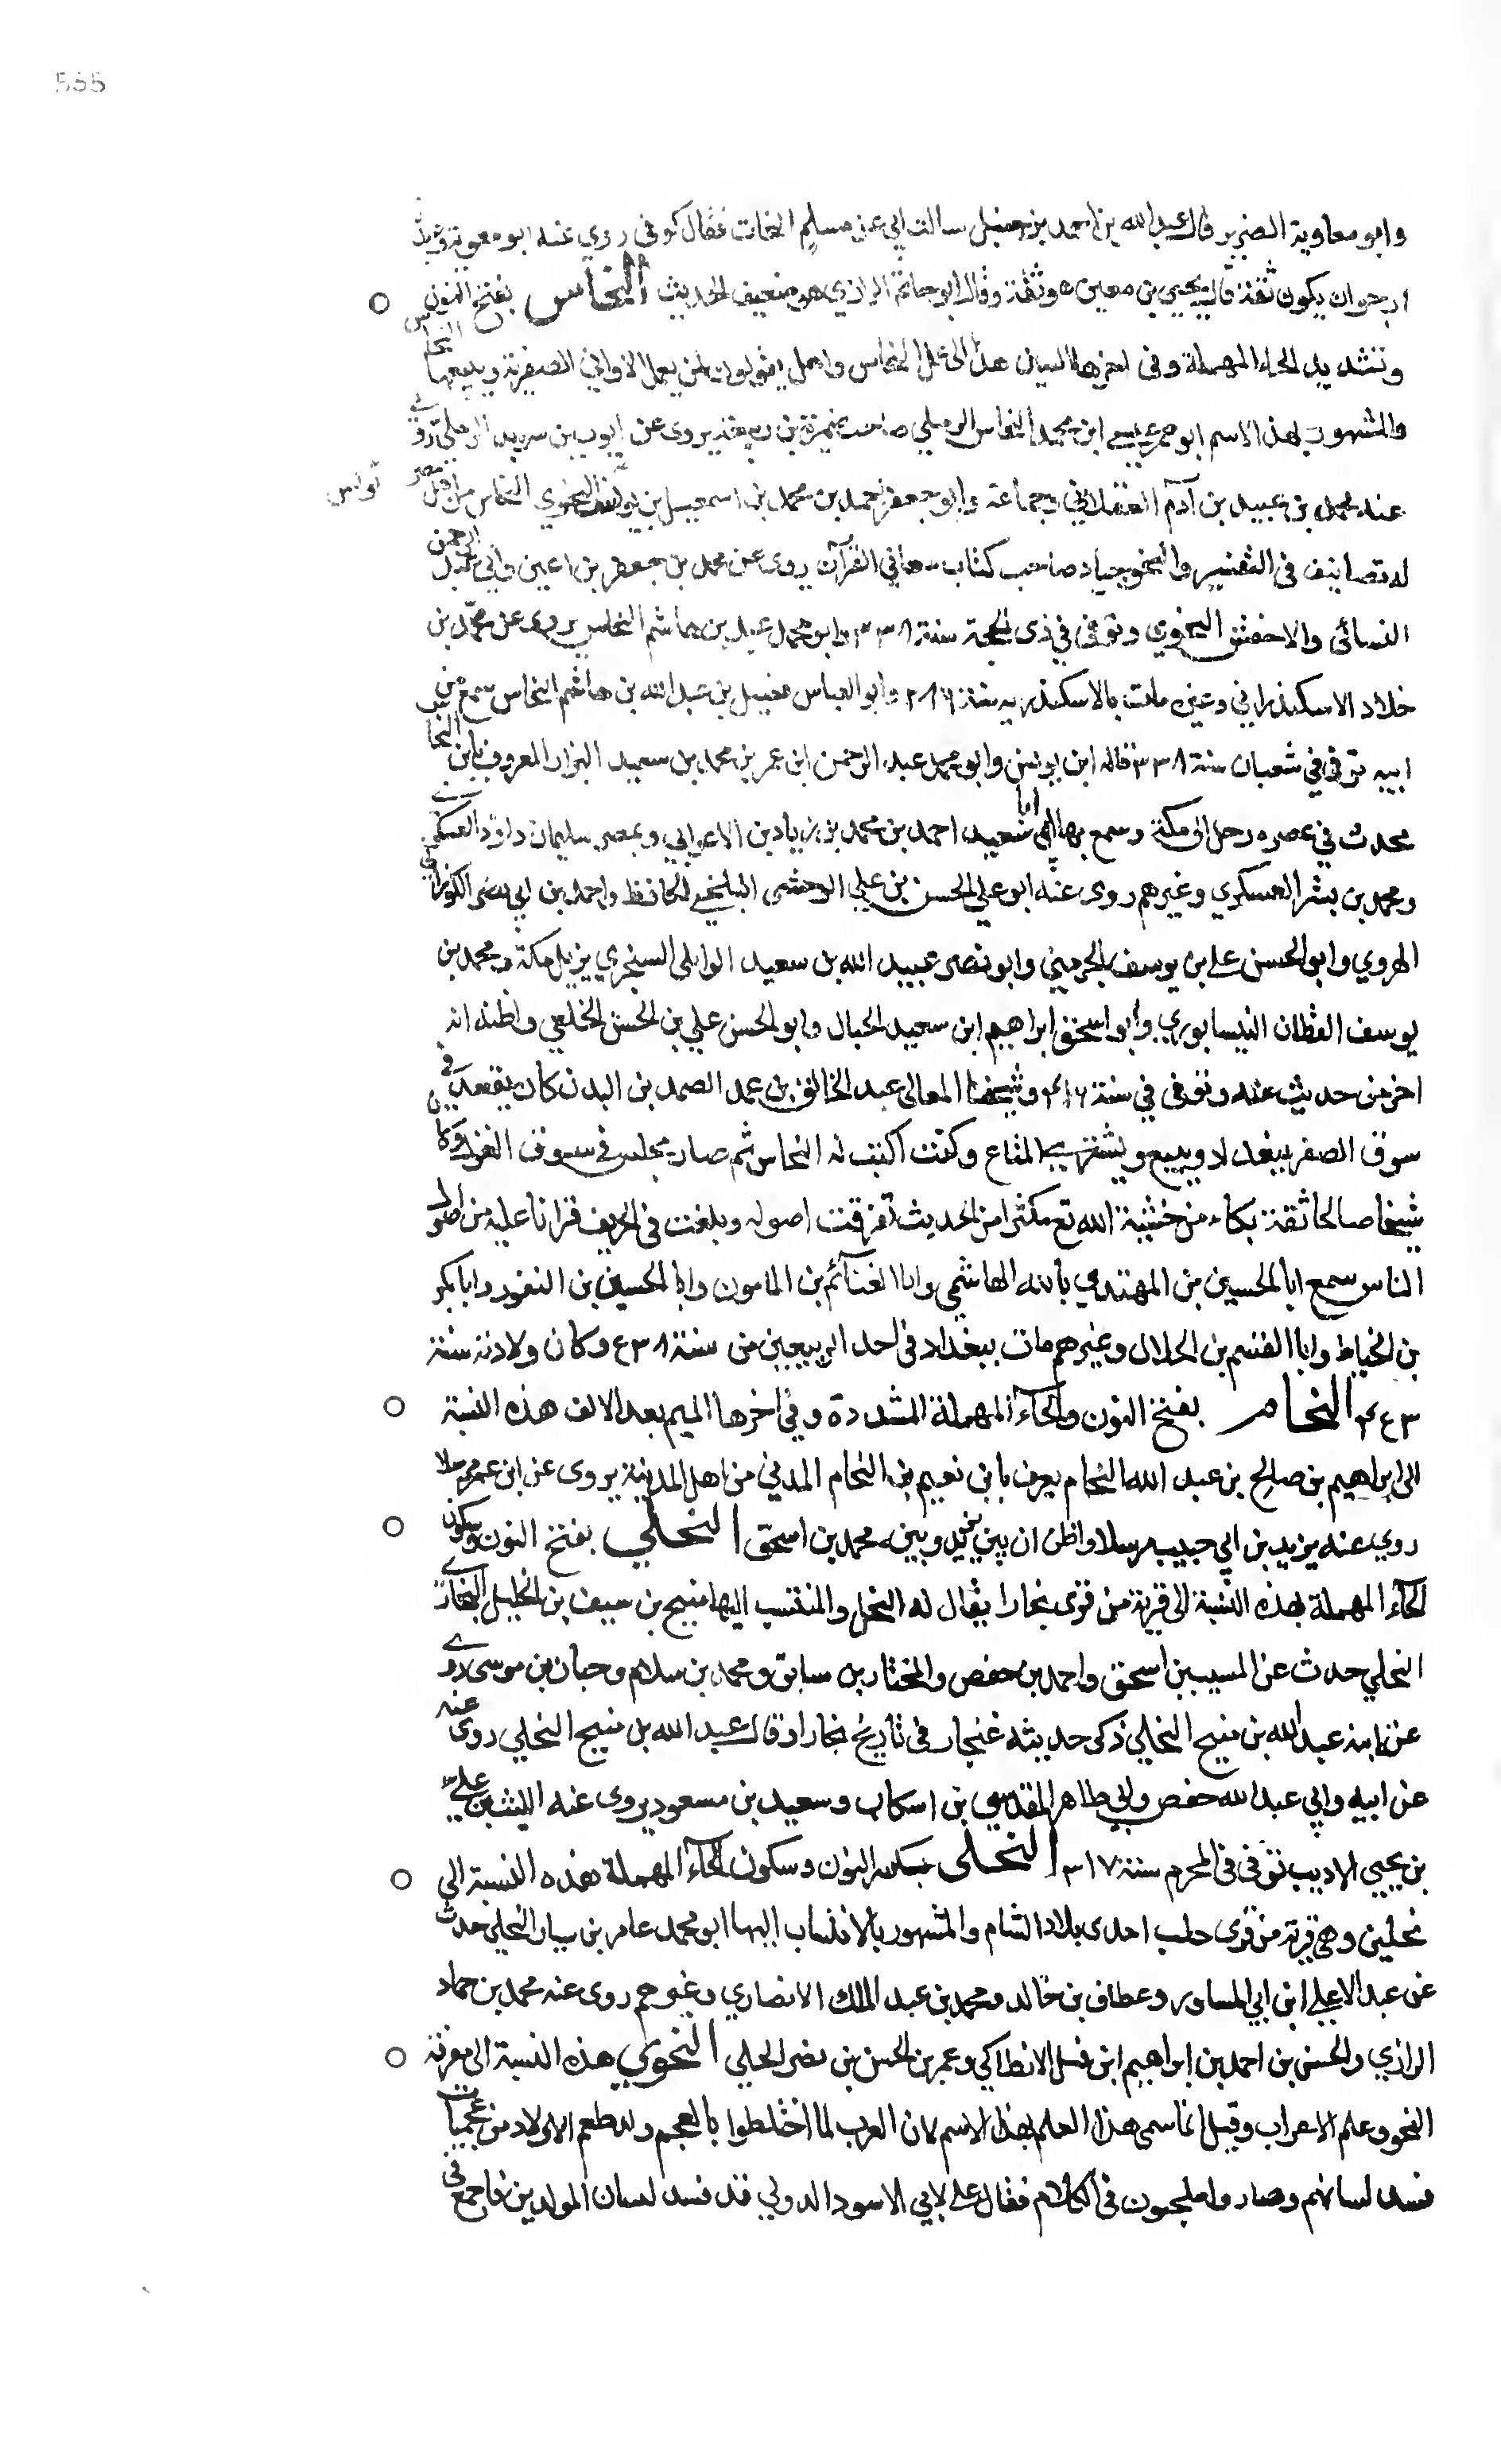 555
وابو معاوية الضرير قال عبدالله بن احمد بن حنبل سالت ابي عن مسلم النحات فقال كوفى روي عنه ابو معوية ويزيد
ارجو ان يكون ثقة قال يحيى بن معين هو ثقة وقال ابو حاتم الرازي هو ضعيف الحديث النحاس بفتح النون
وتشديد الحاء المهملة وفى اخرها السين هذا الى عمل النحاس واهل يقولون لمن يعمل الاواني الصفرية ويبيعها النحاس
والمشهور بهذا الاسم ابو عمير عيسى ابن محمد النحاس الرملي صاحب ضمرة بن ربيعة يروى عن ايوب بن سويد الرملي روي
عنه محمد بن عبيد بن آدم العسقلاني وجماعة وابو جعفر احمد بن محمد بن اسمعيل بن يونس النحوي النحاس من اهل مصر
له تصانيف فى التفسير والنحو جياد صاحب كتاب معاني القرآن روى عن محمد بن جعفر بن اعين وابي عبد الرحمن
النسائى والاخفش النحوي وتوفى في ذى الحجة سنة ٣٣٨ وابو محمد عبيد بن هاشم النحاس يروى عن محمد بن
خلاد الاسكندراني وغيره مات بالاسكندرية سنة ٢٨٦ وابو العباس فضيل بن عبد الله بن هاشم النحاس سمع من
ابيه توفى في شعبان سنة ٣٣٨ قاله ابن يونس وابو محمد عبد الرحمن ابن عمر بن محمد بن سعيد البزار المعروف بابن النحاس
محدث في عصره رحل الى مكة وسمع بها ابا سعيد احمد بن محمد بن زياد بن الاعرابي وبمصر سليمان داود العسكري
ومحمد بن بشر العسكري وغيرهم روى عنه ابو علي الحسن بن علي الوخشى البلخي الحافظ واحمد بن ابي نصر الكوفاني
الهروي وابو الحسن علي بن يوسف الجويني وابو نصر عبيد الله بن سعيد الوايلى السنجري نزيل مكة ومحمد بن
يوسف القطان النيسابوري وابو اسحق ابراهيم ابن سعيد الحبال وابو الحسن علي بن الحسن الخلعي واظنه انه
اخر من حديث عنه وتوفى في سنة ٤١٦ وشيخنا المعالى عبد الخالق بن عبد الصمد بن البدن كان يقعد فى
سوق الصفر ببغداد ويبيع ويشترى المتاع وكنت اكتب له النحاس ثم صار يجلس فى سوق الغزل وكان
شيخا صالحا ثقة بكاء من خشية الله تع مكثرا من الحديث تفرقت اصوله وبلغت فى الحريف قرانا عليه من اصول
الناس سمع ابا الحسين بن المهتدي بالله الهاشمي وابا الغنآئم بن المامون وابا الحسين بن النقور وابا بكر
بن الخياط وابا القسم بن الحلال وغيرهم مات ببغداد فى احد الربيعين من سنة ٥٣٨ وكان ولادته سنة
٤٥٣ النحام بفتح النون والحآء المهملة المشددة وفي اخرها الميم بعد الالف هذه النسبة
الى ابراهيم بن صالح بن عبد الله النحام يعرف بابن نعيم بن النحام المدني من اهل المدينة يروى عن ابن عمر مرسلا
روي عنه يزيد بن ابي حبيب مرسلا واظن ان بين يزيد وبينه محمد بن اسحق النحلي بفتح النون وسكون
الحآء المهملة هذه النسبة الى قرية من قرى بخارا يقال له النحل والمنتسب اليها منيح بن سيف بن الخليل البخاري
النحلي حدث عن المسيب بن اسحق واحمد بن حفص والمختار بن سابق ومحمد بن سلام وحبان بن موسى روي عنه
عن ابنه عبد الله بن منيح النحلي ذكر حديثه غنجار فى تاريخ بخارا وقال عبد الله بن منيح النحلي روى
عن ابيه وابي عبد الله حفص وابي طاهر المقدسي بن اسكاب وسعيد بن مسعود يروى عنه الليث بن علي
بن يحيى الاديب توفى فى المحرم سنة ٣١٧ النحلى بكسر النون وسكون الحآء المهملة هذه النسبة الى
نحلين وهي قرية من قرى حلب احدى بلاد الشام والمشهور بالانتساب اليها ابو محمد عامر بن سيار النحلي حدث
عن عبد الاعلى ابن ابي المساور وعطاف بن خالد ومحمد بن عبد الملك الانصاري وغيرهم روى عنه محمد بن حماد
الرازي والحسن بن احمد بن ابراهيم ابن فيل الانطاكي وعمر بن الحسن بن نصر الحلبي النحوي هذه النسبة الى معرفة
النحو وعلم الاعراب وقيل انما سمى هذا العلم بهذا الاسم لان العرب لما اختلطوا بالعجم وولد لهم الاولاد من عجميات
فسد لسانهم وصاروا يلحنون فى الكلام فقال علي لابي الاسود الدولي قد فسد لسان المولدين فاجمع فى